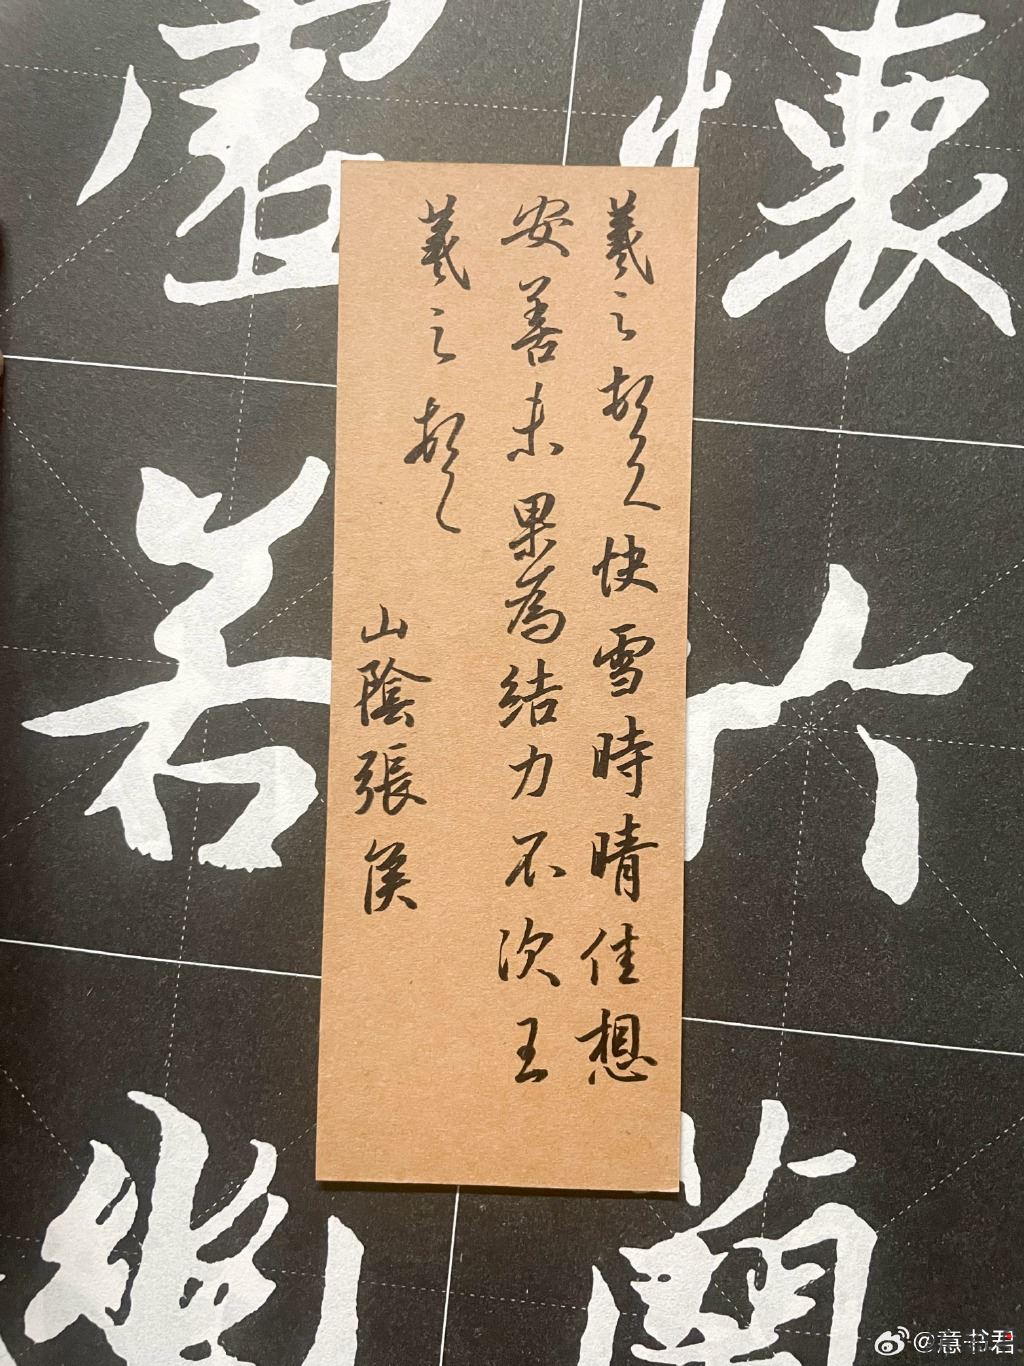 羲之頓首快雪時晴佳想
安善未果為結力不次王
羲之頓首
山陰張侯
懷
六
蘭
虛
若
幽
@意书君